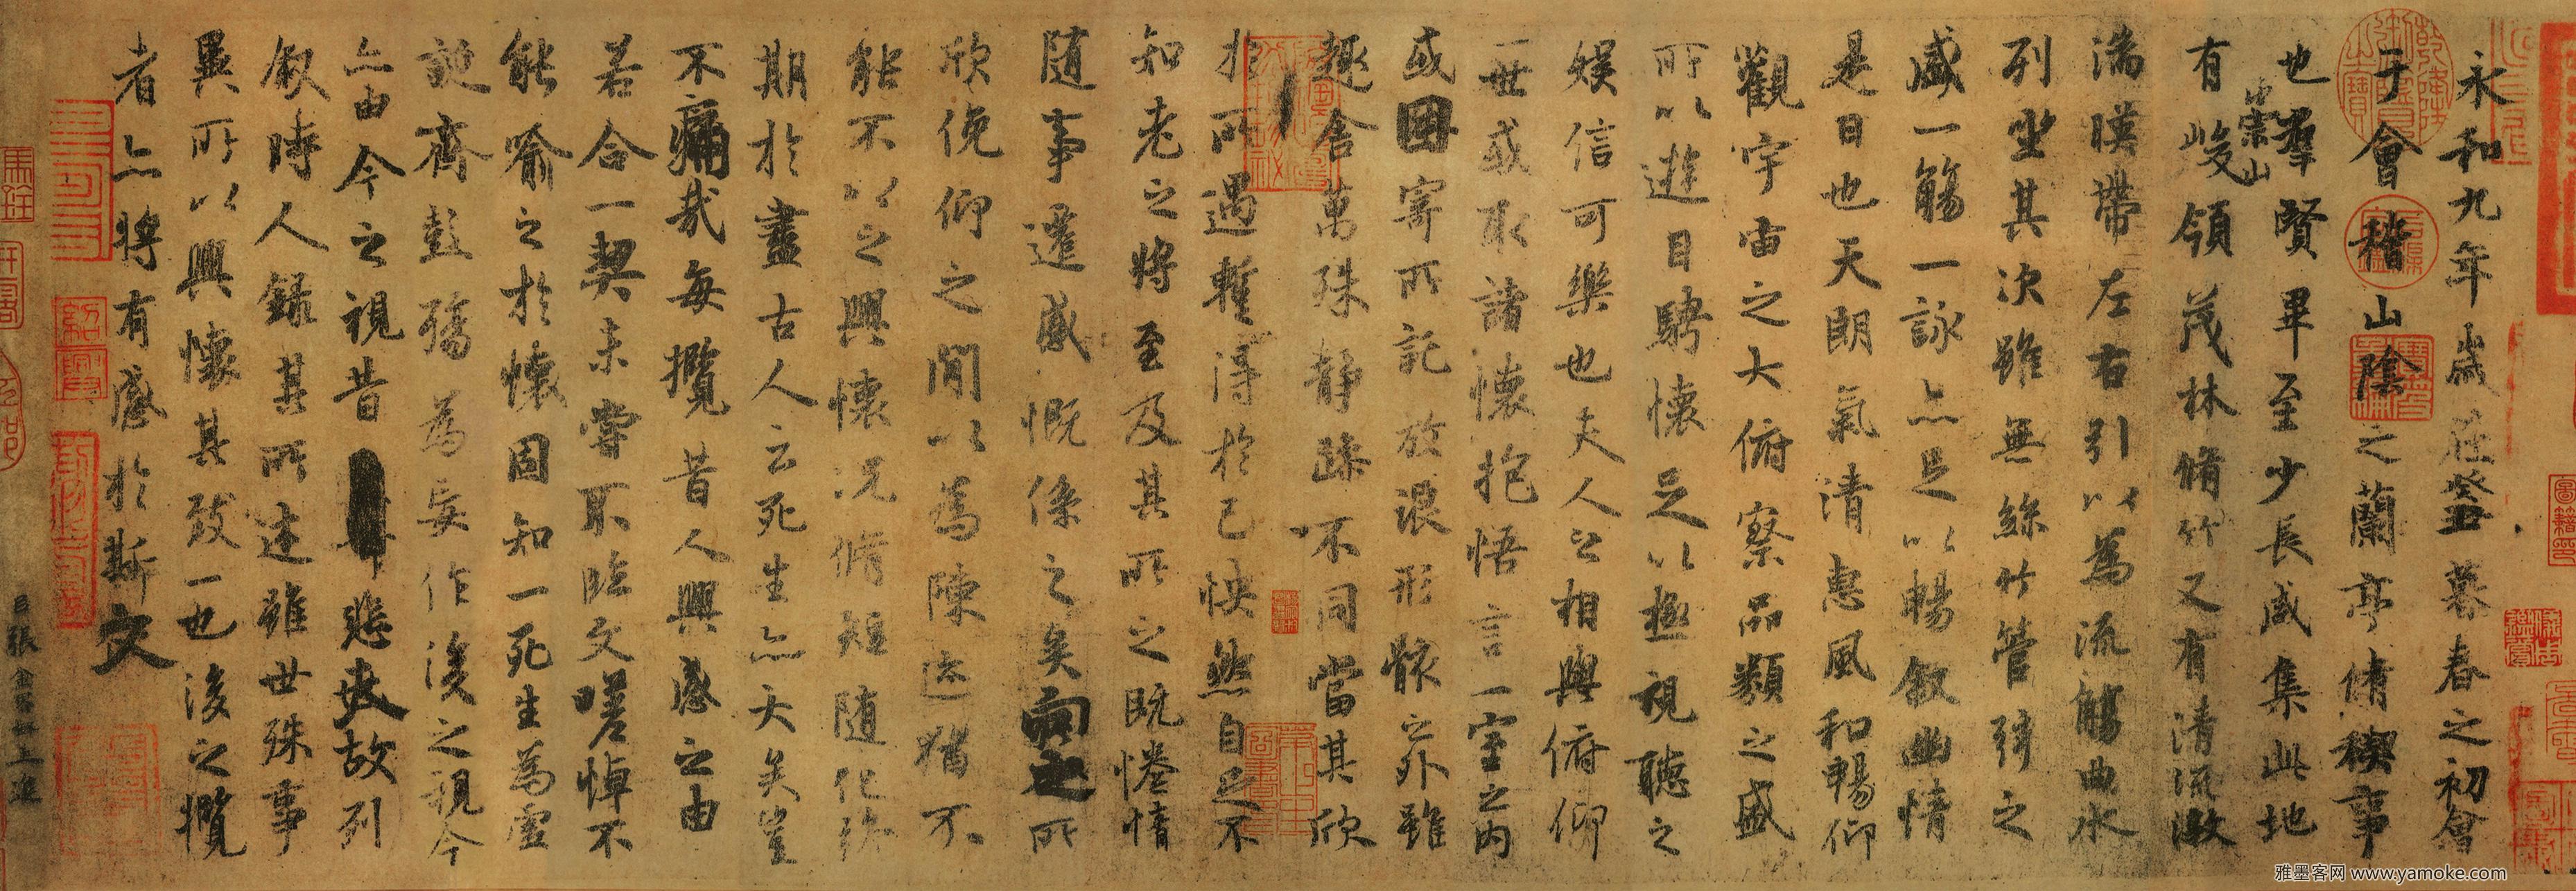 永和九年歲在癸丑暮春之初會
于會稽山陰之蘭亭脩稧事
也羣賢畢至少長咸集此地
有崇山峻領茂林脩竹又有清流激
湍暎帶左右引以為流觴曲水
列坐其次雖無絲竹管弦之
盛一觴一詠亦足以暢敘幽情
是日也天朗氣清惠風和暢仰
觀宇宙之大俯察品類之盛
所以遊目騁懷足以極視聽之
娛信可樂也夫人之相與俯仰
一世或取諸懷抱悟言一室之內
或因寄所託放浪形骸之外雖
趣舍萬殊靜躁不同當其欣
於所遇暫得於己怏然自足不
知老之將至及其所之既惓情
随事遷感慨係之矣向之所
欣俛仰之閒以為陳迹猶不
能不以之興懷況脩短随化終
期於盡古人云死生亦大矣豈
不痛哉每攬昔人興感之由
若合一契未嘗不臨文嗟悼不
能喻之於懷固知一死生為虛
誕齊彭殤為妄作後之視今
亦由今之視昔悲夫故列
敘時人錄其所述雖世殊事
異所以興懷其致一也後之攬
者亦將有感於斯文
臣張金界奴上進
乾隆御覽之寶
雅墨客网 www.yamoke.com